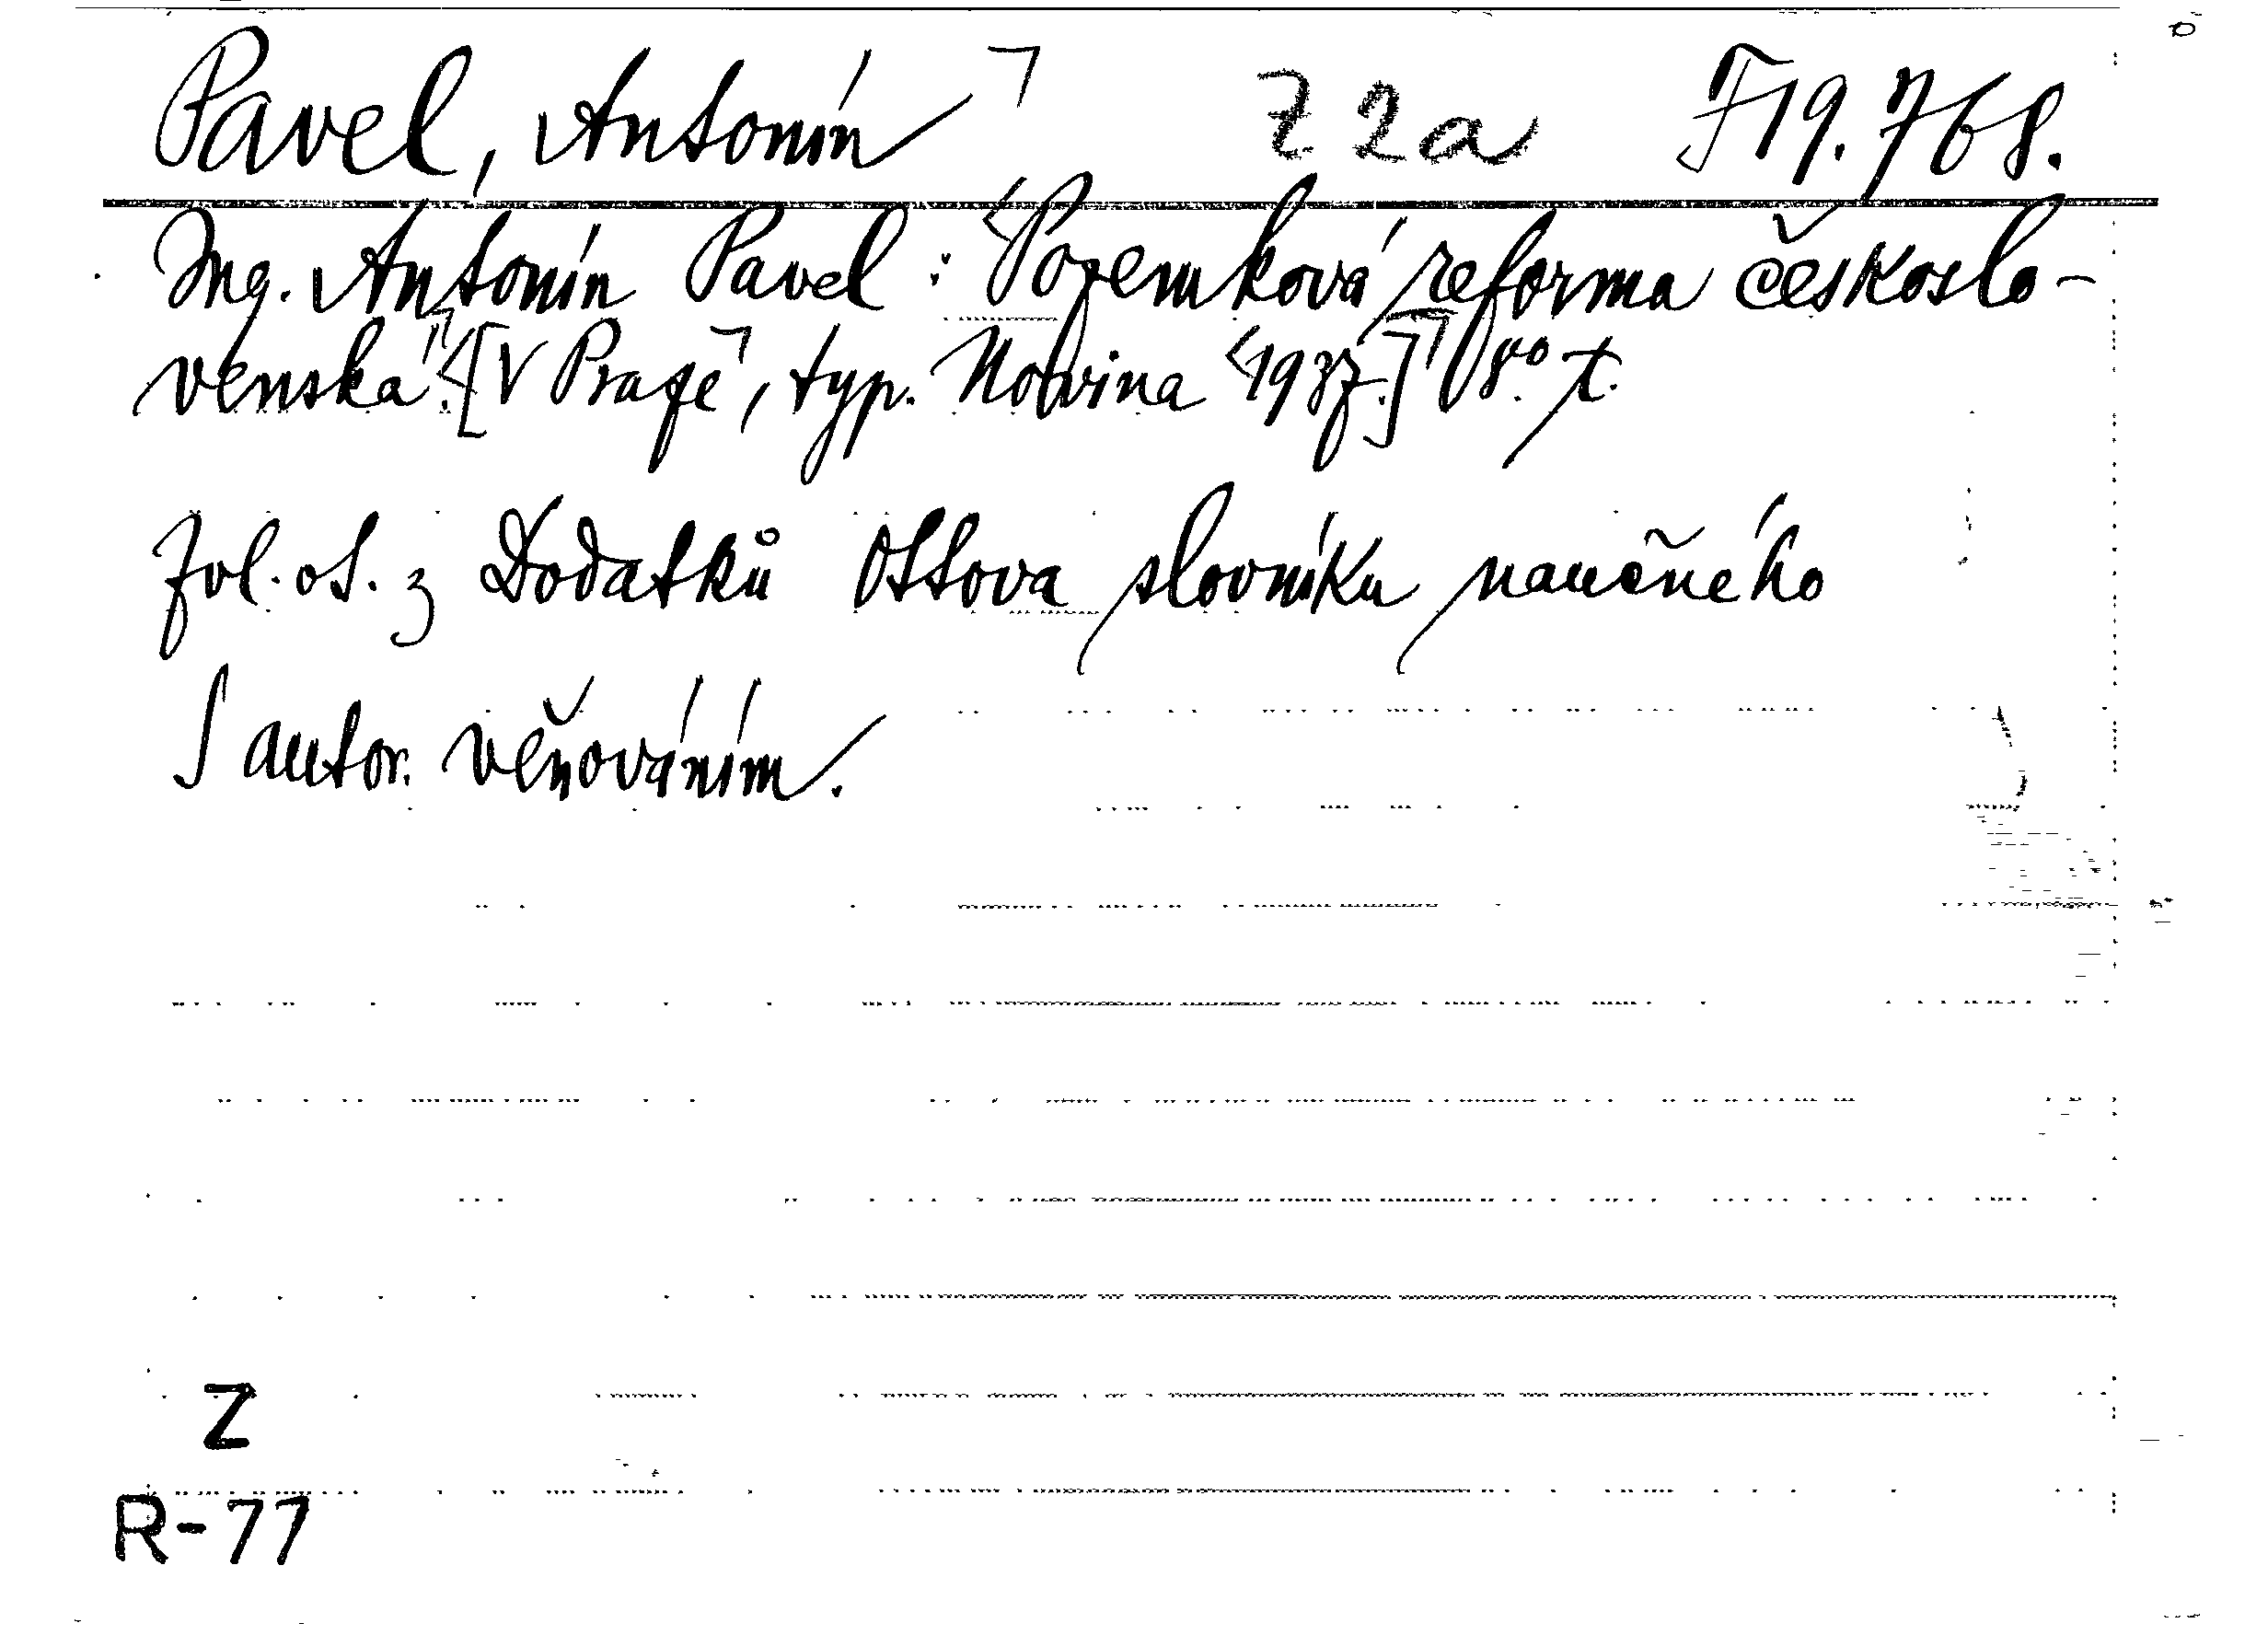 Pavel, Antonín Z 2a F 19.768.
Ing. Antonín Pavel : Pozemková reforma českoslo-
venská. [V Praze, typ. Novina 1937.] 8° t.
Zvl. ot. z Dodatků Ottova slovníku naučného
S autor. věnováním.
Z
R-77